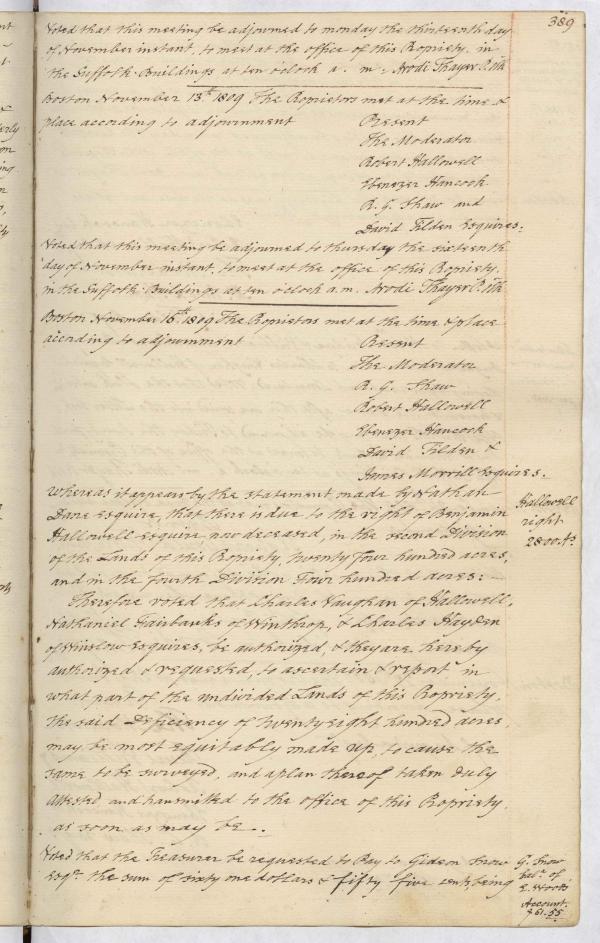 389
Voted that this meeting be adjourned to monday the thirteenth day
of November instant, to meet at the office of this Propriety, in
the Suffolk Buildings at ten o'clock a. m. Arodi Thayer P. Clk
Boston November 13th 1809 The Proprietors met at the time &
place according to adjournment
Present
The Moderator
Robert Hallowell
Ebenezer Hancock
R. G. Shaw and
David Tilden Esquires:
Voted that this meeting be adjourned to thursday the sixteenth
day of November instant, to meet at the office of this Propriety,
in the Suffolk Buildings at ten o'clock a.m. Arodi Thayer P. Clk
Boston November 16th 1809 The Proprietors met at the time & place
according to adjournment
Present
The Moderator
R. G. Shaw
Robert Hallowell
Ebenezer Hancock
David Tilden &
James Morrill Esquires.
Whereas it appears by the statement made by Nathan
Dane Esquire, that there is due to the right of Benjamin
Hallowell Esquire, now deceased, in the second Division
of the Lands of this Propriety, twenty four hundred acres,
and in the fourth Division Four hundred acres:
Hallowell
right
2800 As
Therefore voted that Charles Vaughan of Hallowell,
Nathaniel Fairbanks of Winthrop, & Charles Hayden
of Winslow Esquires, be authorized, & they are hereby
authorized & requested, to ascertain & report in
what part of the undivided Lands of this Propriety,
the said Deficiency of twenty eight hundred acres,
may be most equitably made up, to cause the
same to be surveyed, and a plan thereof taken duly
attested and transmitted to the office of this Propriety,
as soon as may be..
Voted that the Treasurer be requested to Pay to Gideon Snow
Esqr. the sum of sixty one dollars & fifty five cents, being
G. Snow
balce. of
Account.
$61.55